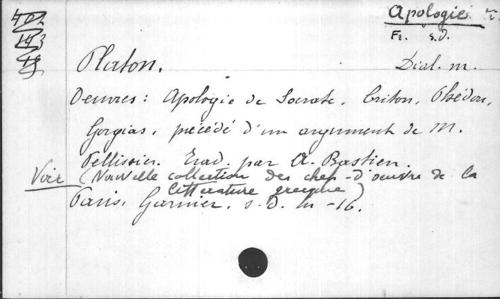 Apologie
Fr. s.d.
Platon. Dial. m.
Oeuvres: Apologie de Socrate, Criton, Phédon,
Gorgias, précédé d'un argument de M.
Pellissier. Trad. par A. Bastien.
Voir (Nouvelle collection des chefs-d'oeuvre de la
littérature grecque)
Paris, Garnier, s.d. in-16.